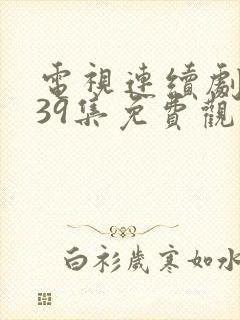 電視連續劇
39集免費觀
白衫歲寒如水